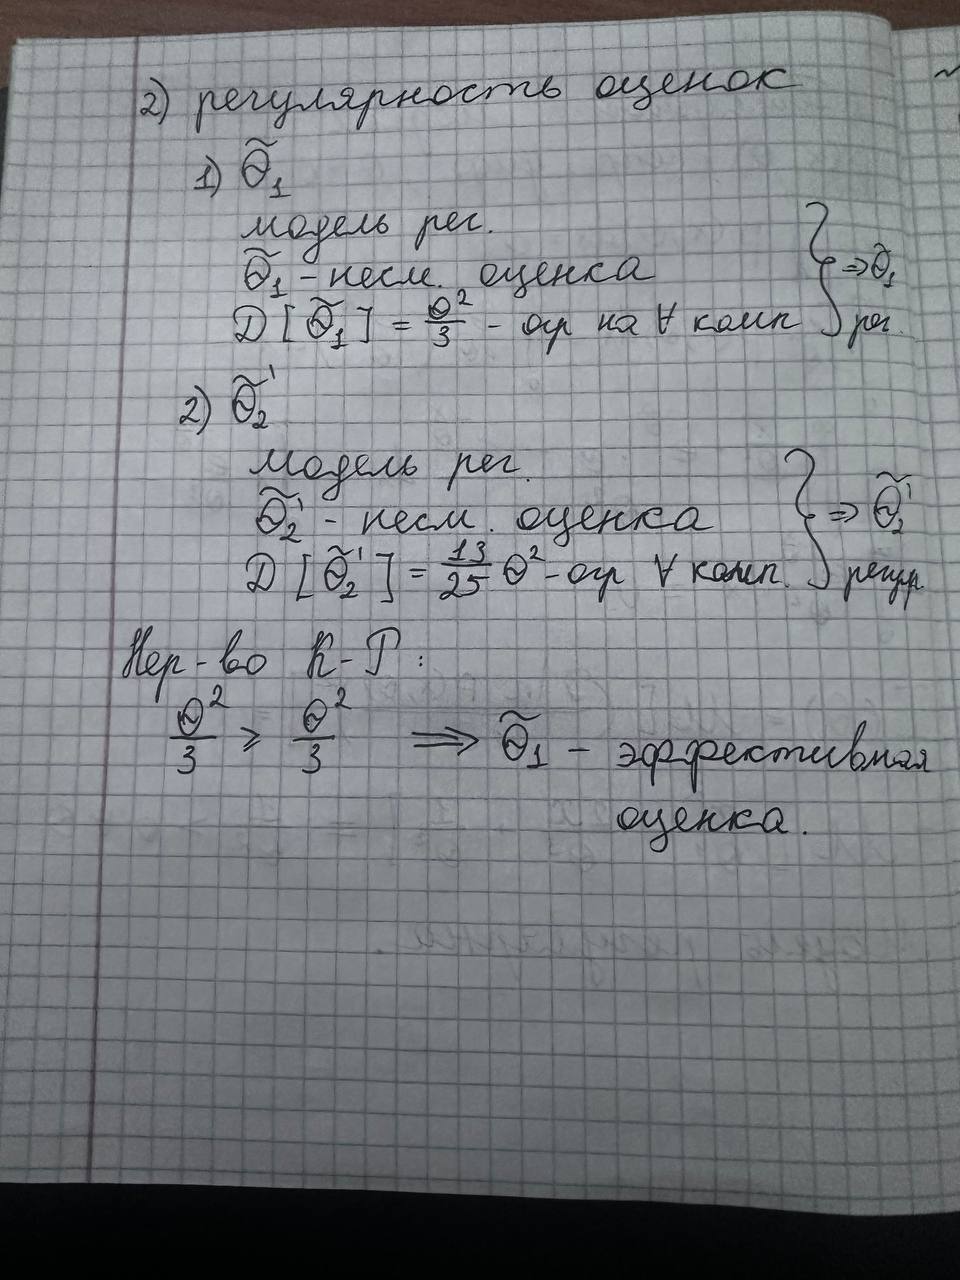 2) регулярность оценок
1) Θ̃₁
модель рег.
Θ̃₁ - несм. оценка
D[Θ̃₁] = Θ²/3 - огр на ∀ комп } ⇒ Θ̃₁ рег.
2) Θ̃₂'
модель рег.
Θ̃₂' - несм. оценка
D[Θ̃₂'] = 13/25 Θ² - огр ∀ комп. } ⇒ Θ̃₂' регул
Нер-во К-Р:
Θ²/3 ≥ Θ²/3 ⟹ Θ̃₁ - эффективная
оценка.